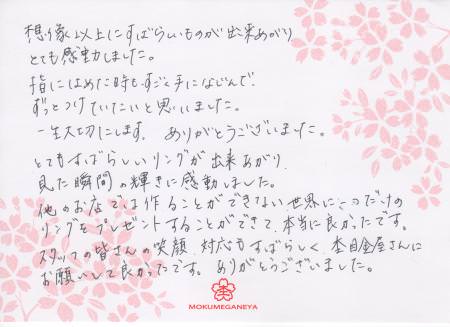 想像以上にすばらしいものが出来あがり
とても感動しました。
指にはめた時も、すごく手になじんで、
ずっとつけていたいと思いました。
一生大切にします。ありがとうございました。
とてもすばらしいリングが出来あがり、
見た瞬間の輝きに感動しました。
他のお店では作ることができない世界に二つだけの
リングをプレゼントすることができて、本当に良かったです。
スタッフの皆さんの笑顔、対応もすばらしく、杢目金屋さんに
お願いして良かったです。ありがとうございました。
MOKUMEGANEYA